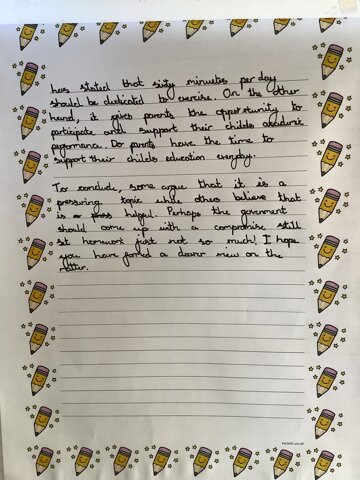 has stated that sixty minuetes per day
should be dedicated to exercise. On the other
hand, it gives parents the oppurtunity to
participate and support their childs academic
performance. Do parents have the time to
support their childs education everyday.
To conclude, some argue that it is a
pressuring topic while others believe that
is helpful. Perhaps the government
should come up with a compromise still
set homework just not so much! I hope
you have formed a clearer view on the
matter.
twinkl.co.uk